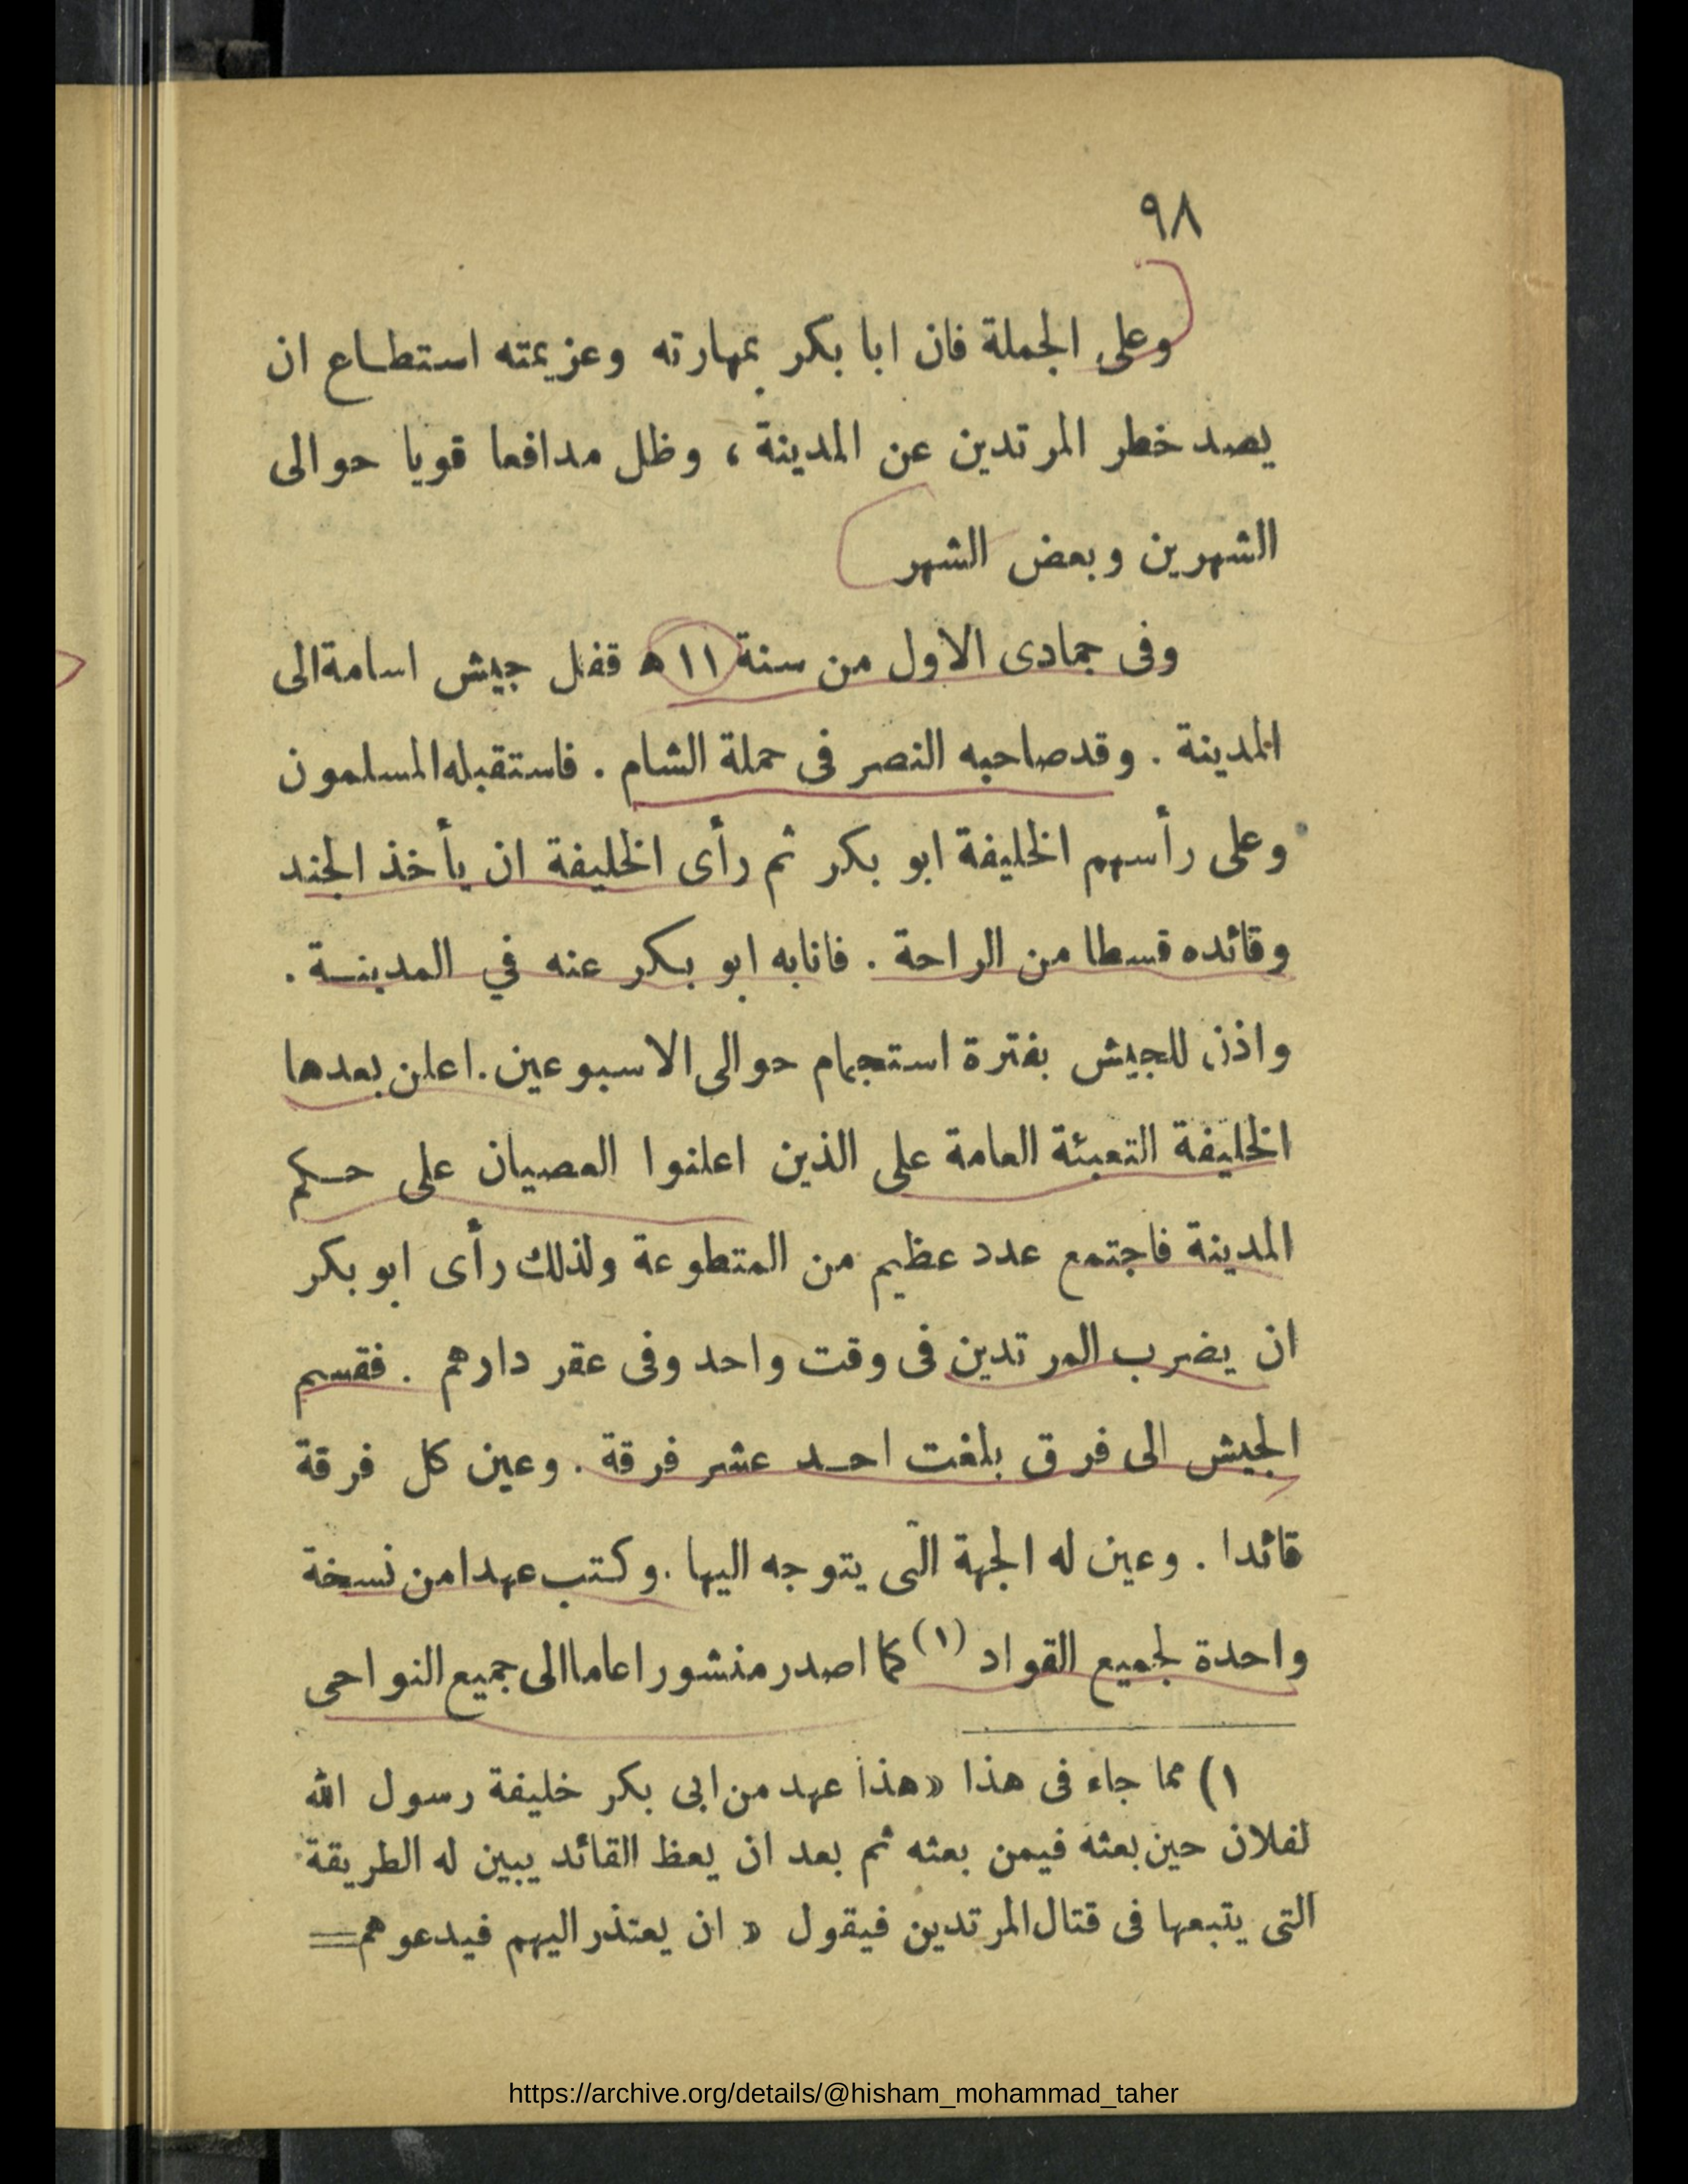 ٩٨
وعلى الجملة فان ابا بكر بمهارته وعزيمته استطاع ان
يصد خطر المرتدين عن المدينة ، وظل مدافعا قويا حوالى
الشهرين وبعض الشهر
وفى جمادى الاول من سنة ١١ ه قفل جيش اسامة الى
المدينة . وقد صاحبه النصر فى حملة الشام . فاستقبله المسلمون
وعلى رأسهم الخليفة ابو بكر ثم رأى الخليفة ان يأخذ الجند
وقائده قسطا من الراحة . فانابه ابو بكر عنه في المدينة .
واذن للجيش بفترة استجمام حوالى الاسبوعين . اعلن بعدها
الخليفة التعبئة العامة على الذين اعلنوا العصيان على حكم
المدينة فاجتمع عدد عظيم من المتطوعة ولذلك رأى ابو بكر
ان يضرب المرتدين فى وقت واحد وفى عقر دارهم . فقسم
الجيش الى فرق بلغت احد عشر فرقة . وعين كل فرقة
قائدا . وعين له الجهة التى يتوجه اليها . وكتب عهدا من نسخة
واحدة لجميع القواد (١) كما اصدر منشورا عاما الى جميع النواحى
١) مما جاء فى هذا « هذا عهد من ابى بكر خليفة رسول الله
لفلان حين بعثه فيمن بعثه ثم بعد ان يعظ القائد يبين له الطريقة
التى يتبعها فى قتال المرتدين فيقول « ان يعتذر اليهم فيدعوهم =
https://archive.org/details/@hisham_mohammad_taher